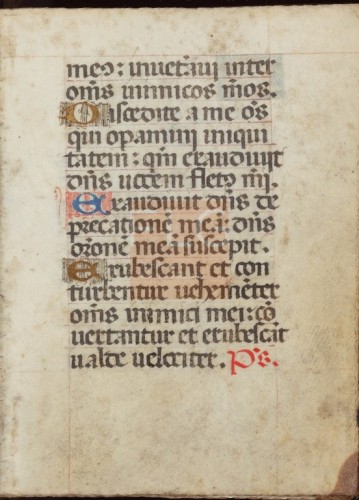 meo: inueteraui inter
om̄s inimicos mōs.
Discedite a me oēs
qui opamini iniqui
tatem: qm̄ exaudiuit
dn̄s uocem fletꝰ mei.
Exaudiuit dn̄s de
precationē meā: dn̄s
orōnē meā suscepit.
Erubescant et con
turbentur uehemēter
om̄s inimici mei: cō
uertantur et erubescāt
ualde uelociter. Ps.